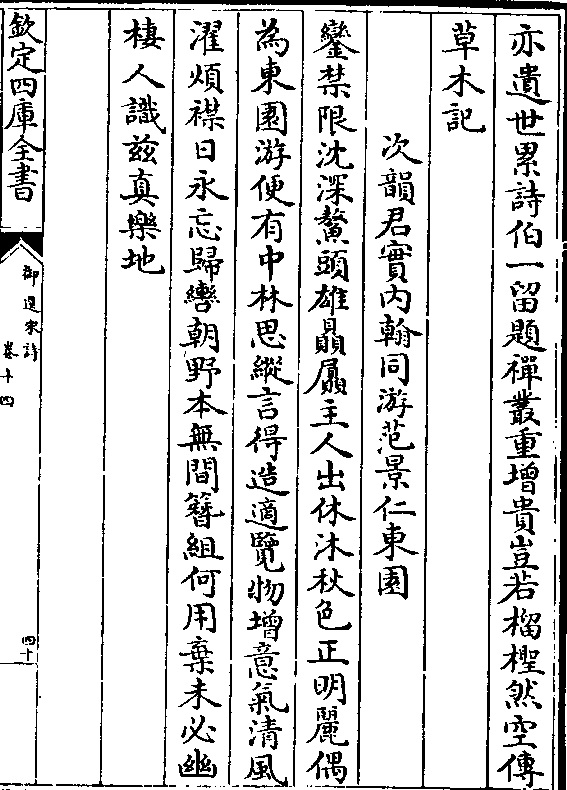 亦遺世累詩伯一留題禪叢重增貴豈若榴檉然空傳
草木記
次韻君實内翰同游范景仁東園
鑾禁限沈深鰲頭雄贔屭主人出休沐秋色正明麗偶
為東園游便有中林思縱言得造適覽物增意氣清風
濯煩襟日永忘歸轡朝野本無間簪組何用棄未必幽
棲人識茲真樂地
欽定四庫全書
御選宋詩
卷十四
四十